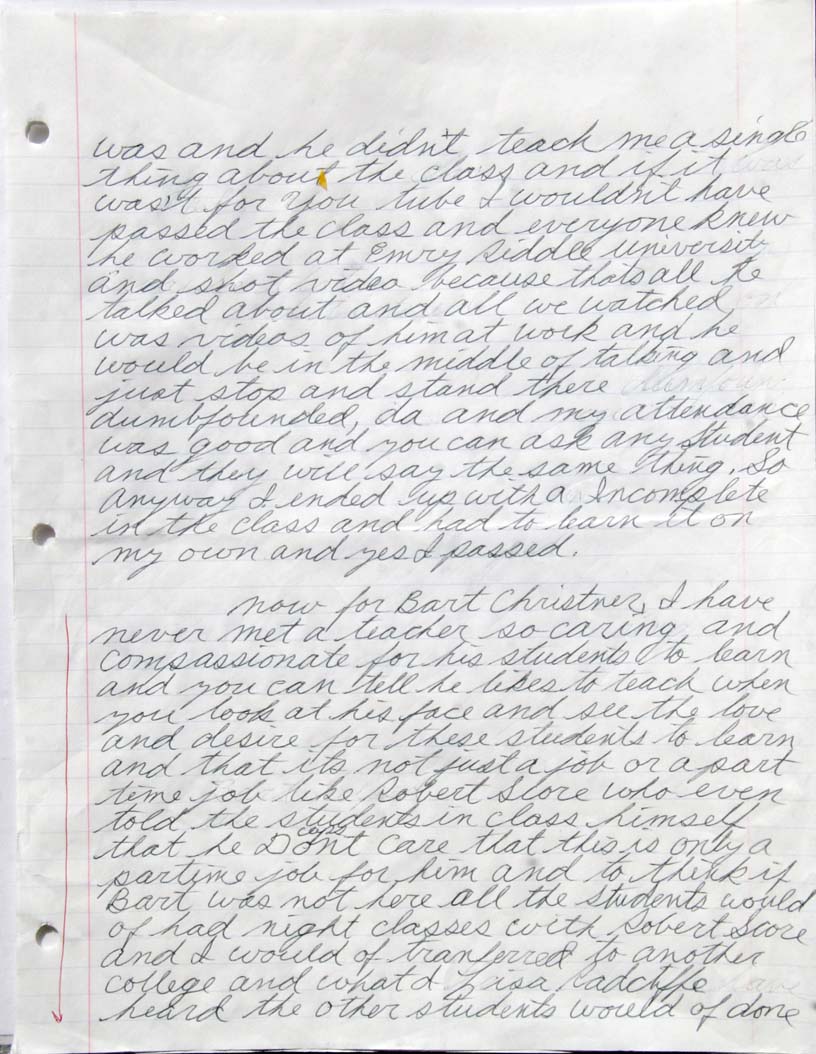 was and he didn't teach me a single
thing about the class and if it was
was't for you tube I wouldn't have
passed the class and everyone knew
he worked at Emry Riddle university
and shot video because thats all he
talked about and all we watched
was videos of him at work and he
would be in the middle of talking and
just stop and stand there
dumbfounded, da and my attendance
was good and you can ask any student
and they will say the same thing. So
anyway I ended up with a Incomplete
in the class and had to learn it on
my own and yes I passed.
now for Bart Christner, I have
never met a teacher so caring and
compassionate for his students to learn
and you can tell he likes to teach when
you look at his face and see the love
and desire for these students to learn
and that its not just a job or a part
time job like Robert Score who even
told the students in class himself
oops
that he Don't care that this is only a
partime job for him and to think if
Bart was not here all the students would
of had night classes with Robert Score
and I would of tranferred to another
college and what I Lisa Radcliffe
heard the other students would of done